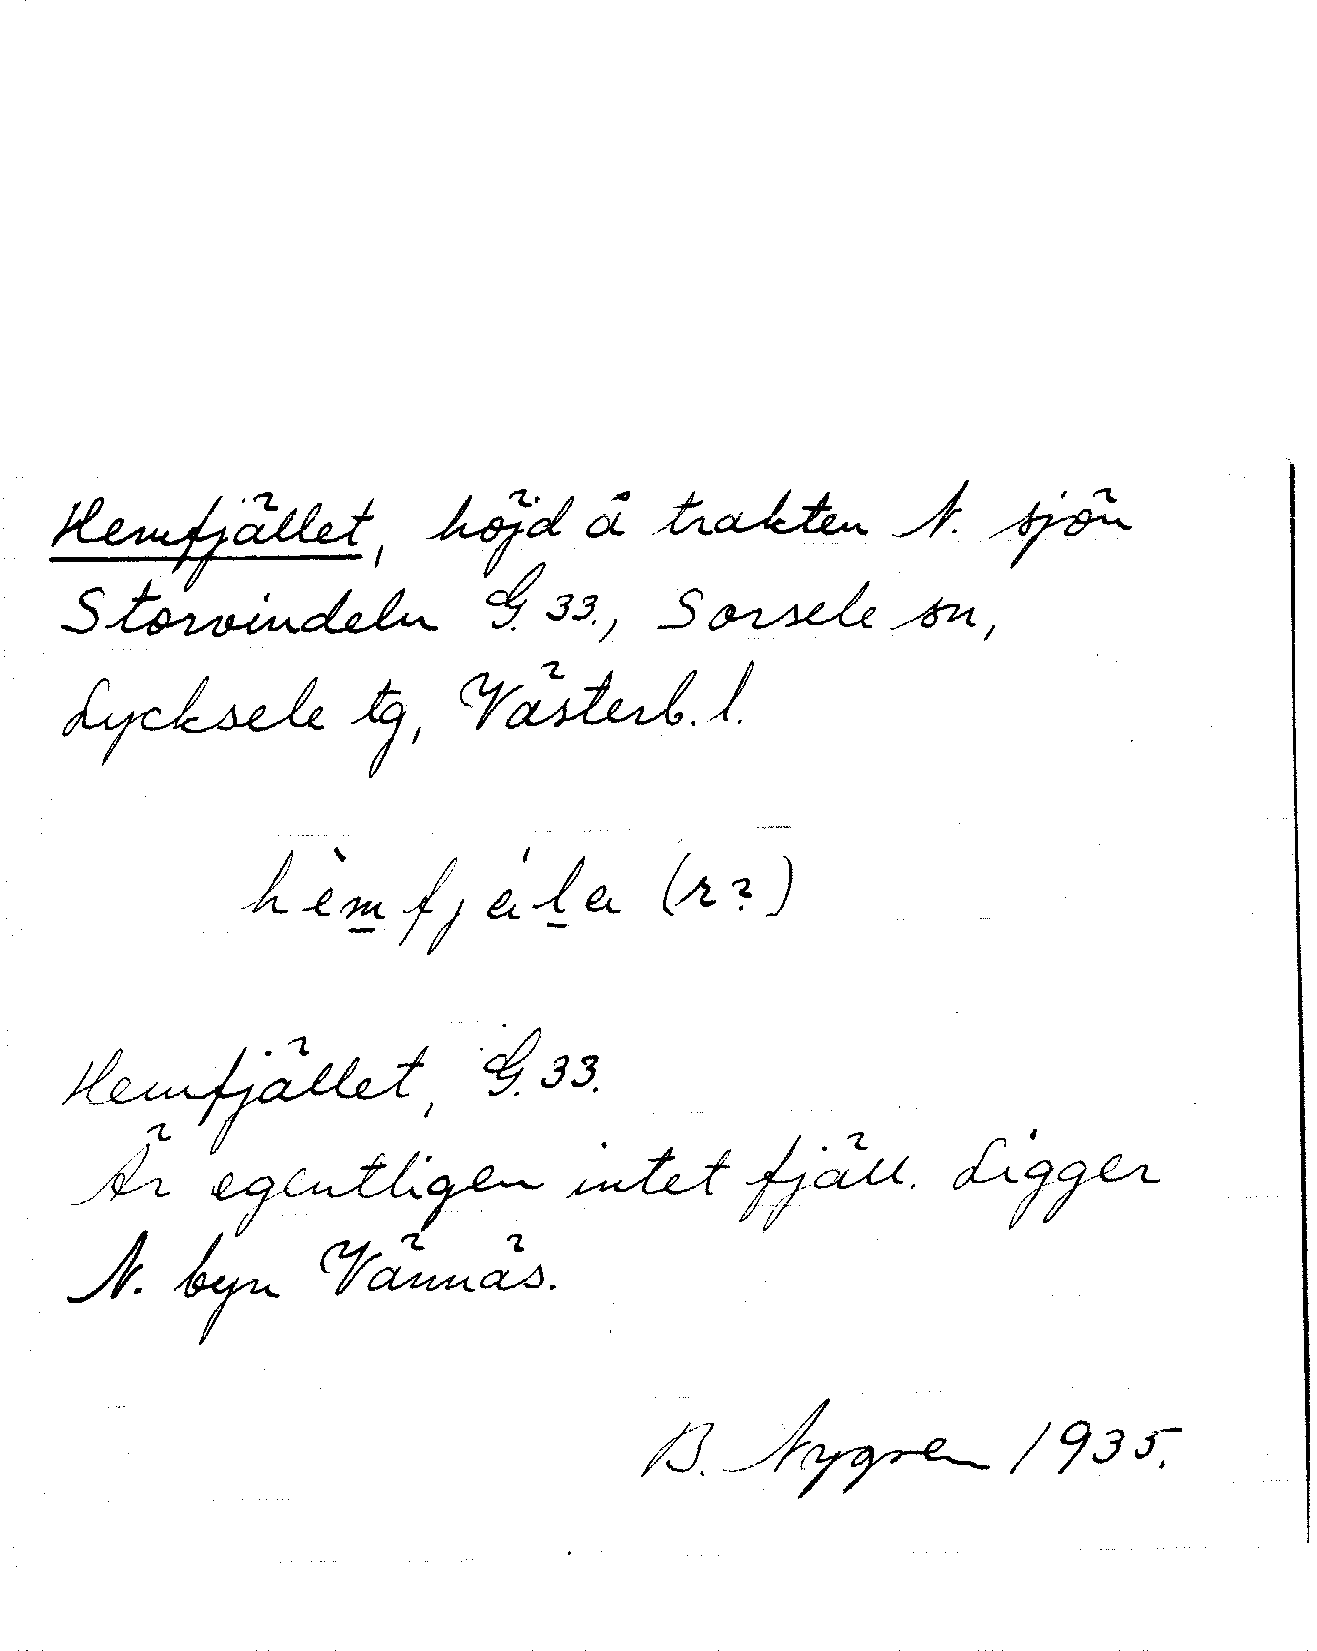 Hemfjället, höjd å trakten N. sjön
Storvindeln G. 33., Sorsele sn,
Lycksele tg, Västerb. l.
hèmfjála (r?)
Hemfjället, G. 33.
Är egentligen intet fjäll. Ligger
N. byn Vännäs.
B. Nygren 1935.